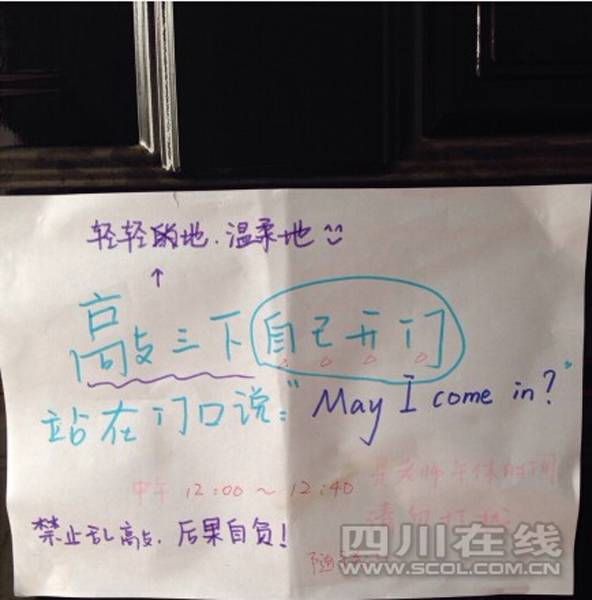 轻轻的地.温柔地
敲三下自己开门
站在门口说:"May I come in?"
中午 12:00～12:40
是老师午休时间
请勿打扰
禁止乱敲.后果自负!
随
四川在线
WWW.SCOL.COM.CN